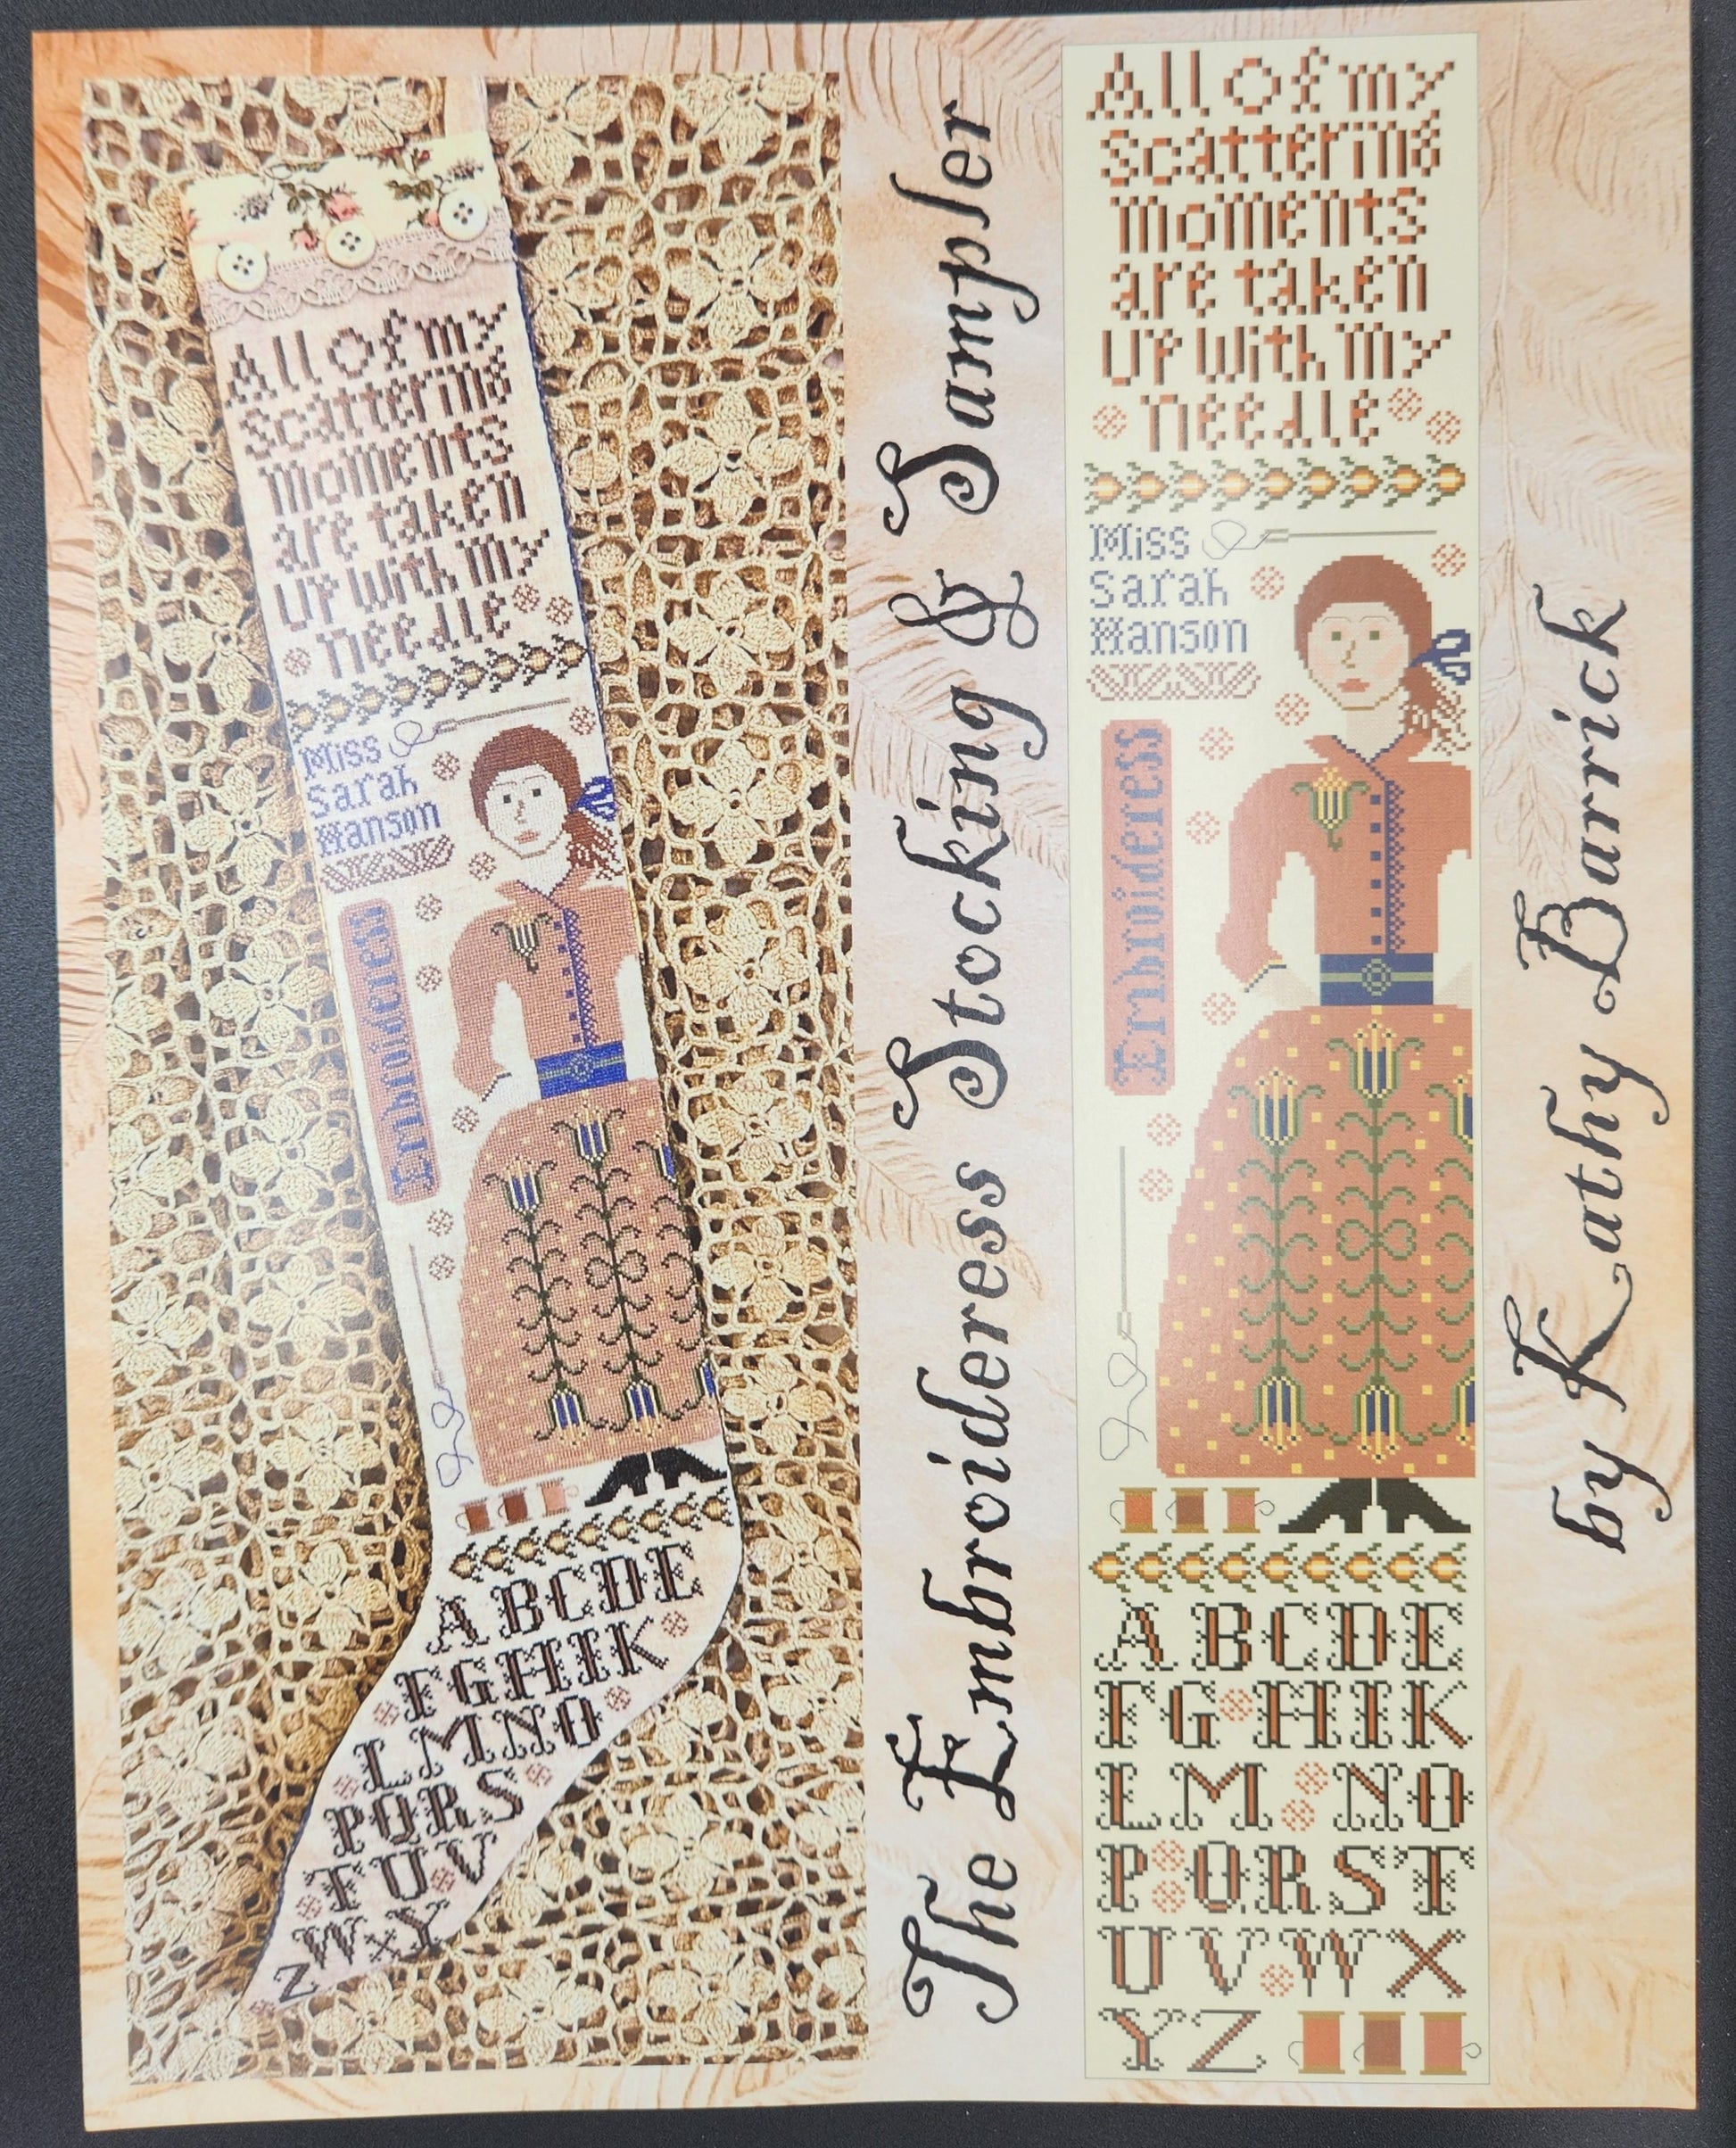 All Of my
Scattering
moments
are taken
Up With My
needle
Miss
Sarah
Hanson
Embroideress
A B C D E
F G H I K
L M N O
P Q R S
T U V
W X Y
Z
The Embroideress Stocking & Sampler
All Of my
Scattering
moments
are taken
Up With My
needle
Miss
Sarah
Hanson
Embroideress
A B C D E
F G H I K
L M N O
P Q R S T
U V W X
Y Z
by Kathy Barrick